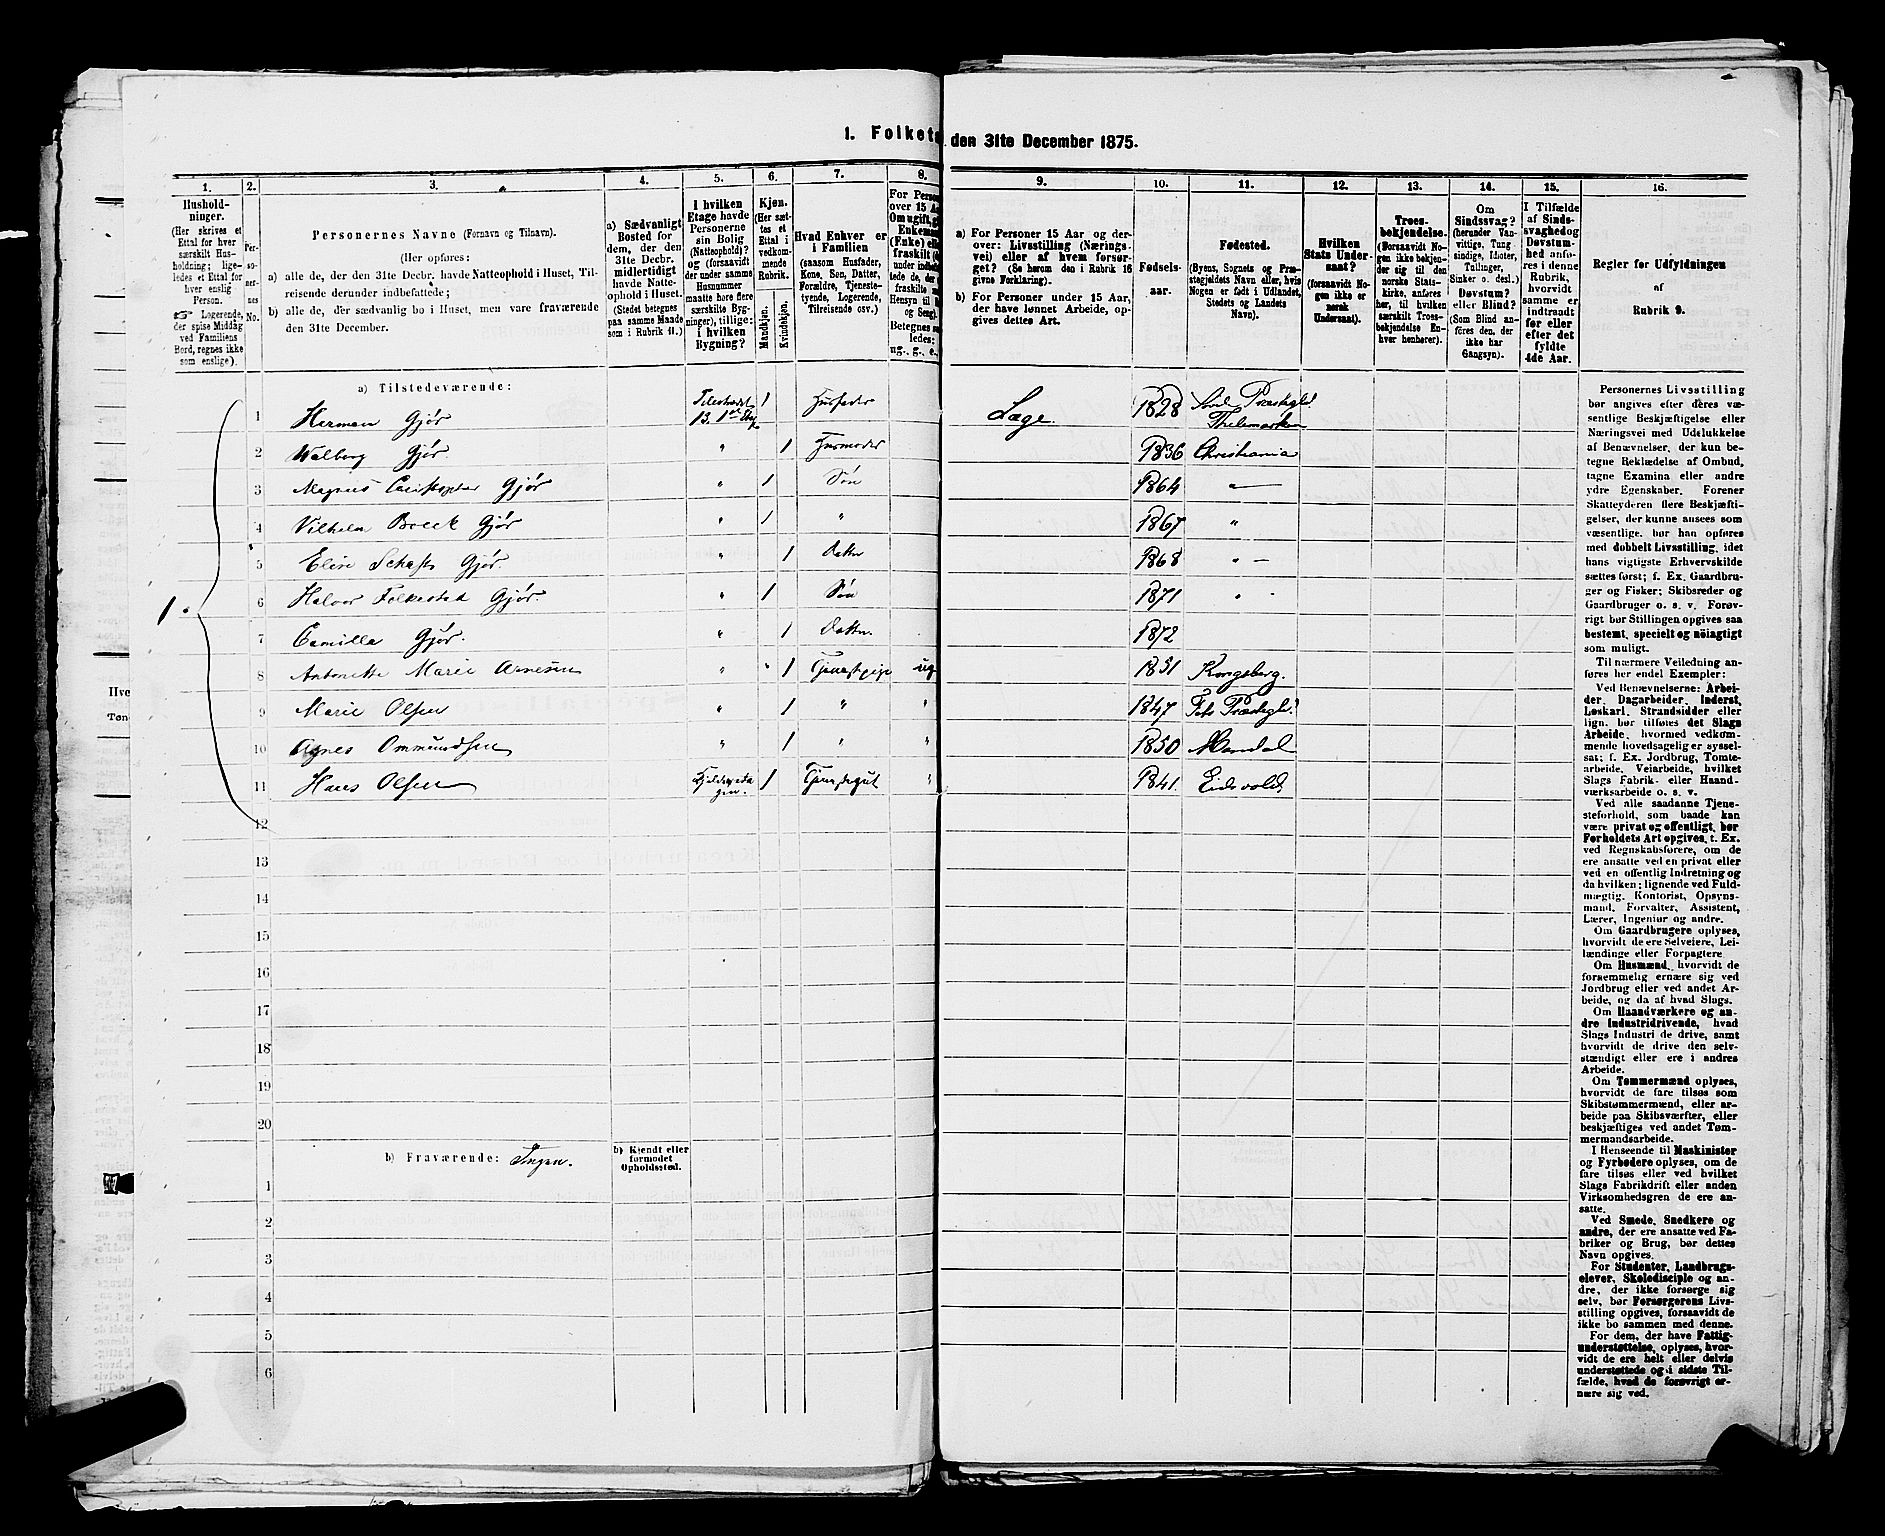 1. Folket
den 31te December 1875.
1.
2.
3.
4.
5.
6.
7.
8.
9.
10.
11.
12.
13.
14.
15.
16.
Hushold-
ninger.
(Her skrives et
Ettal for hver
særskilt Hus-
holdning; lige-
ledes et Ettal for
hver enslig
Person.
☞ Logerende,
der spise Middag
ved Familiens
Bord, regnes ikke
som enslige).
Per-
so-
ner-
nes
No.
Personernes Navne (Fornavn og Tilnavn).
(Her opføres:
a) alle de, der den 31te Decbr. havde Natteophold i Huset, Til-
reisende derunder indbefattede;
b) alle de, der sædvanlig bo i Huset, men vare fraværende
den 31te December.
a) Sædvanligt
Bosted for
dem, der den
31te Decbr.
midlertidigt
havde Natte-
ophold i Huset.
(Stedet betegnes
paa samme Maade
som i Rubrik 11.)
I hvilken
Etage havde
Personerne
sin Bolig
(Natteophold)?
og (forsaavidt
der under samme
Husnummer
maatte høre flere
særskilte Byg-
ninger), tillige:
i hvilken
Bygning?
Kjøn.
(Her sæt-
tes et
Ettal i
vedkom-
mende
Rubrik.
Mandkjøn.
Kvindekjøn.
Hvad Enhver er
i Familien
(saasom Husfader,
Kone, Søn, Datter,
Forældre, Tjeneste-
tyende, Logerende,
Tilreisende osv.)
For Perso
over 15 Aa
Om ugift, gi
Enkeman
(Enke) elle
fraskilt (d
under indbe
tede de, de
fraskilte
Hensyn til
og Seng).
Betegnes sa
ledes:
ug., g., e.,
a) For Personer 15 Aar og der-
over: Livsstilling (Nærings-
vei) eller af hvem forsør-
get? (Se herom den i Rubrik 16
givne Forklaring).
b) For Personer under 15 Aar,
der have lønnet Arbeide, op-
gives dettes Art.
Fødsels-
aar.
Fødested.
(Byens, Sognets og Præ-
stegjeldets Navn eller, hvis
Nogen er født i Udlandet,
Stedets og Landets
Navn).
Hvilken
Stats Under-
saat?
(forsaavidt No-
gen ikke er
norsk
Undersaat).
Troes-
bekjendelse.
(Forsaavidt No-
gen ikke bekjen-
der sig til den
norske Stats-
kirke, anføres
her, til hvilken
særskilt Troes-
bekjendelse En-
hver henhører).
Om
Sindssvag?
(herunder Van-
vittige, Tung-
sindige, Idioter,
Tullinger,
Sinker o. desl.)
Døvstum?
eller Blind?
(Som Blind an-
føres den, der
ikke har
Gangsyn).
I Tilfælde
af Sinds-
svaghed og
Døvstum-
hed anfø-
res i denne
Rubrik,
hvorvidt
samme er
indtraadt
før eller
efter det
fyldte
4de Aar.
Regler for Udfyldningen
af
Rubrik 9.
a) Tilstedeværende:
1 Herman Gjør 13. 1 Husfader Læge. 1828 Præstegld. Thelemarken
2 Walborg Gjør " 1 Husmoder 1836 Christiania
3 Magnus Gjør " 1 Søn 1864 "
4 Vilhelm Boeck Gjør " 1 " 1867 "
5 Elise Gjør " 1 Datter 1868 "
6 Halvor Folkestad Gjør. " 1 Søn 1871 "
7 Camilla Gjør. " 1 Datter. 1872
8 Antonette Marie Arnesen " " 1 ug 1851 Kongsberg.
9 Marie Olsen " 1 " " 1847 Præstegld.
10 Agnes Ommundsen " 1 " " 1850 Mandal
11 Hans Olsen 1 " 1841. Eidsvold
1.
12
13
14
15
16
17
18
19
20
b) Fraværende: Ingen.
b) Kjendt eller
formodet
Opholdssted.
1
2
3
4
5
6
Personernes Livsstilling
bør angives efter deres væ-
sentlige Beskjæftigelse eller
Næringsvei med Udelukkelse
af Benævnelser, der kun be-
tegne Beklædelse af Ombud,
tagne Examina eller andre
ydre Egenskaber. Forener
Skatteyderen flere Beskjæfti-
gelser, der kunne ansees som
væsentlige, bør han opføres
med dobbelt Livsstilling, idet
hans vigtigste Erhvervskilde
sættes først; f. Ex. Gaardbru-
ger og Fisker; Skibsreder og
Gaardbruger o. s. v. Forøv-
rigt bør Stillingen opgives saa
bestemt, specielt og nøiagtigt
som muligt.
Til nærmere Veiledning an-
føres her endel Exempler:
Ved Benævnelserne: Arbei-
der, Dagarbeider, Inderst,
Løskarl, Strandsidder eller
lign. bør tilføies det Slags
Arbeide, hvormed vedkom-
mende hovedsagelig er syssel-
sat; f. Ex. Jordbrug, Tomte-
arbeide, Veiarbeide, hvilket
Slags Fabrik- eller Haand-
værksarbeide o. s. v.
Ved alle saadanne Tjene-
steforhold, som baade kan
være privat og offentligt, bør
Forholdets Art opgives, t. Ex.
ved Regnskabsførere, om de
ere ansatte ved en privat eller
ved en offentlig Indretning og
da hvilken; lignende ved Fuld-
mægtig, Kontorist, Opsyns-
mand, Forvalter, Assistent,
Lærer, Ingeniør og andre.
Om Gaardbrugere oplyses,
hvorvidt de ere Selveiere, Lei-
lændinge eller Forpagtere.
Om Husmænd, hvorvidt de
fornemmelig ernære sig ved
Jordbrug eller ved andet Ar-
beide, og da af hvad Slags.
Om Haandværkere og an-
dre Industridrivende, hvad
Slags Industri de drive, samt
hvorvidt de drive den selv-
stændigt eller ere i andres
Arbeide.
Om Tømmermænd oplyses,
hvorvidt de fare tilsøs som
Skibstømmermænd, eller ar-
beide paa Skibsværfter, eller
beskjæftiges ved andet Tøm-
mermandsarbeide.
I Henseende til Maskinister
og Fyrbødere oplyses, om de
fare tilsøs eller ved hvilket
Slags Fabrikdrift eller anden
Virksomhedsgren de ere an-
satte.
Ved Smede, Snedkere og
andre, der ere ansatte ved Fa-
briker og Brug, bør dettes
Navn opgives.
For Studenter, Landbrugs-
elever, Skoledisciple og an-
dre, der ikke forsørge sig
selv, bør Forsørgerens Livs-
stilling opgives, forsaavidt de
ikke bo sammen med denne.
For dem, der have Fattig-
understøttelse, oplyses, hvor-
vidt de ere helt eller delvis
understøttede og i sidste Til-
fælde, hvad de forøvrigt er-
nære sig ved.